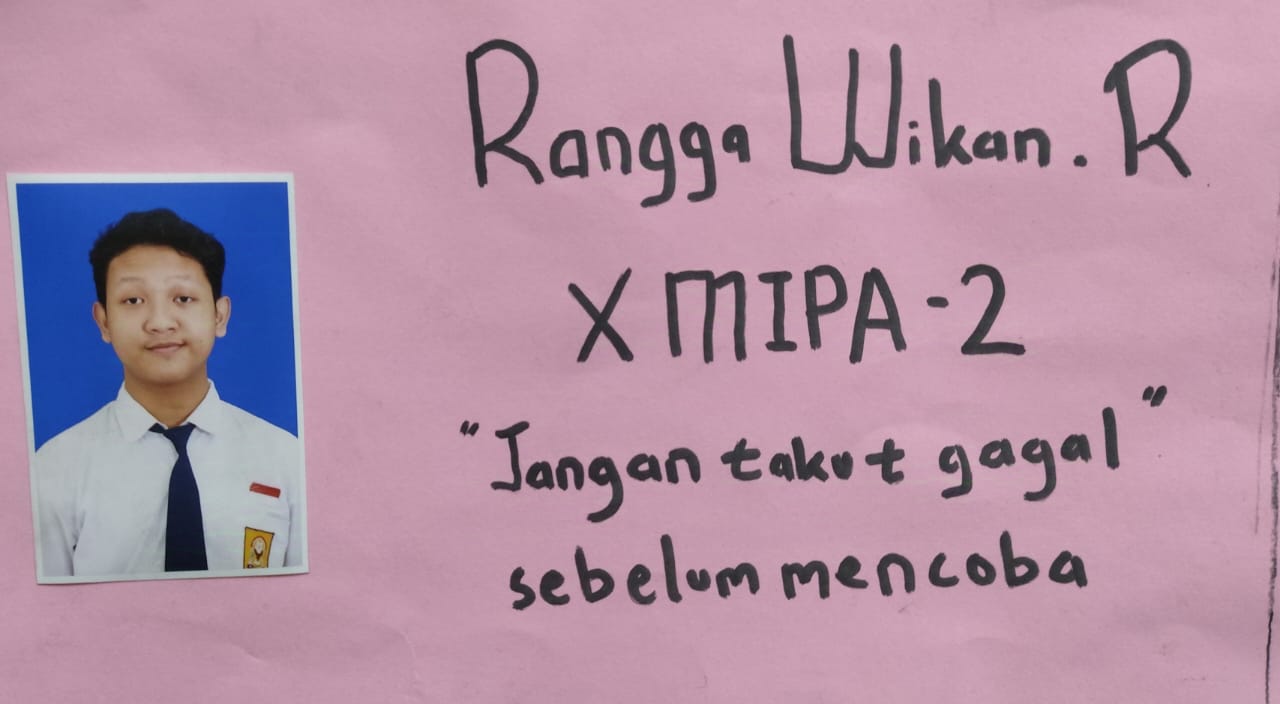 Rangga Wikan. R
X MIPA-2
"Jangan takut gagal"
sebelum mencoba